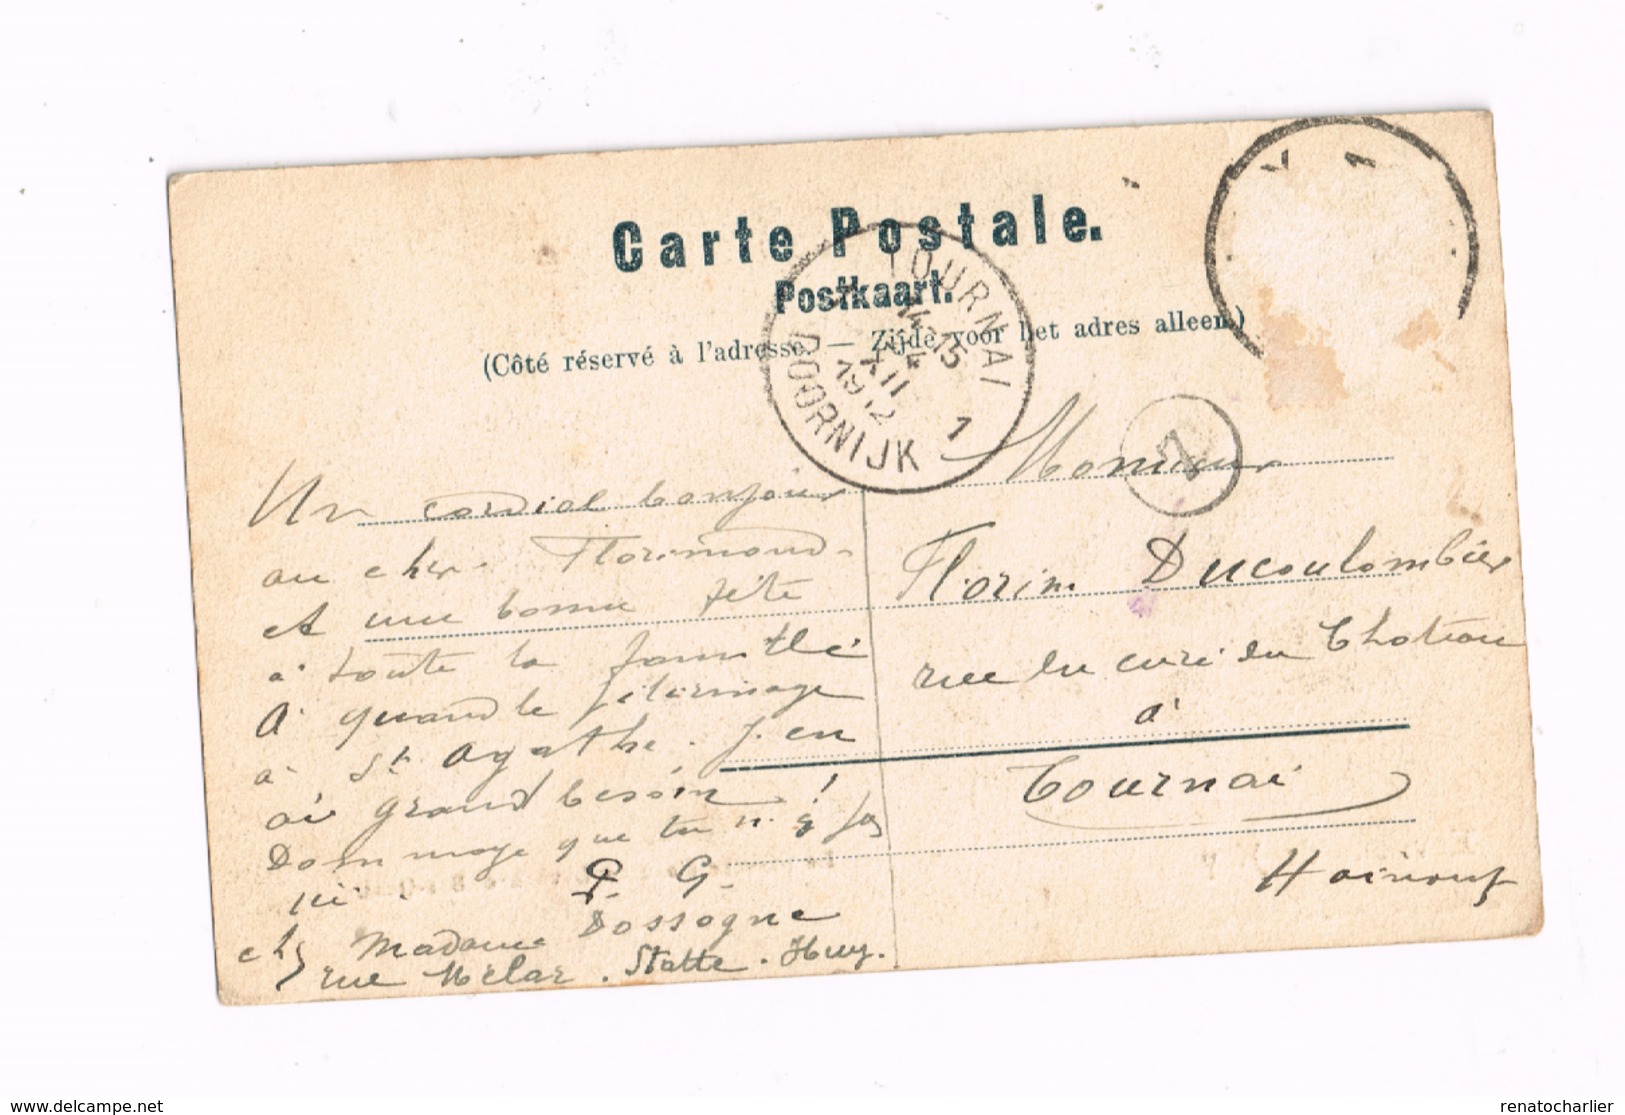 Carte Postale.
Postkaart.
(Côté réservé à l'adresse. — Zijde voor het adres alleen.)
TOURNAI
14-15
24
XII
1912
1
DOORNIJK
1
Monsieur
Florim Ducoulombier
rue du curé du Château
à
Tournai
Hainaut
Un cordial bonjour
au cher Florimond
et une bonne fête
à toute la famille
A quand le pélerinage
à St Agathe. J'en
ai grand besoin !
Dommage que tu n'y
G.
chez Madame Dossogne
rue Mélar. Statte. Huy.
renatocharlier